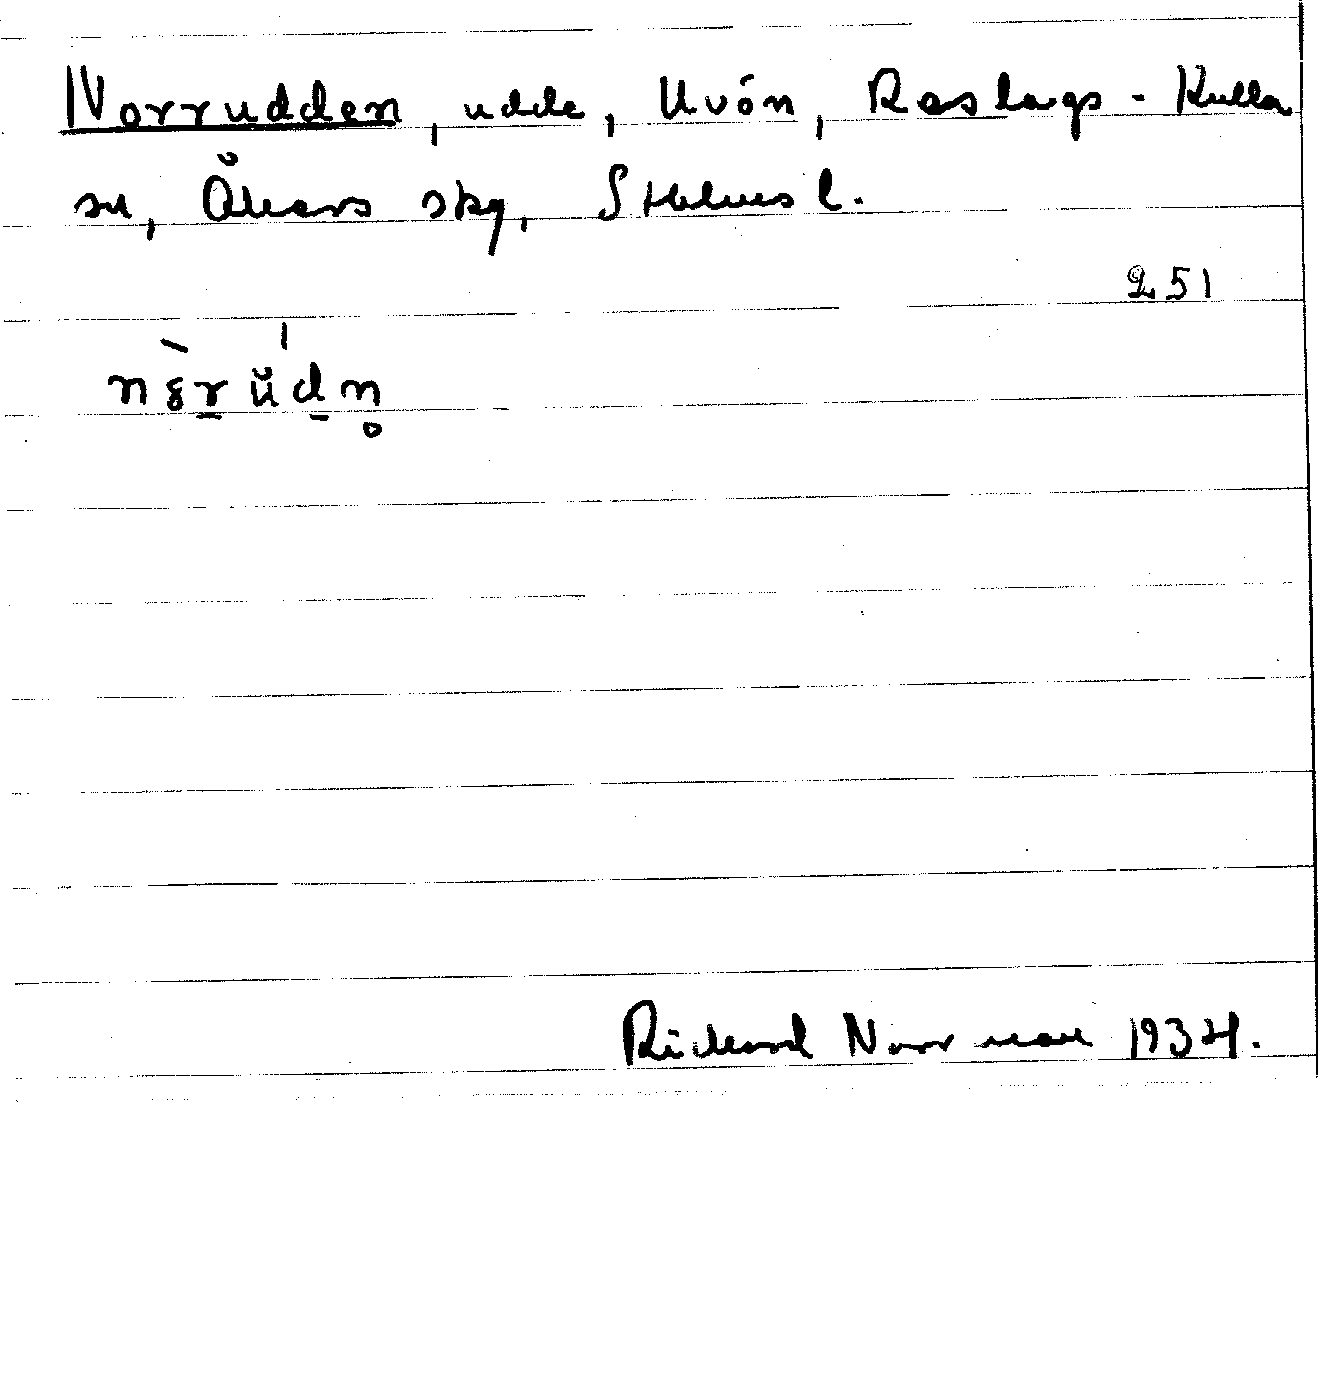 Norrudden, udde, Uvön, Roslags-Kulla
sn, Åkers skg, Sthlms l.
251
nèr̠ŭd̠n̥
Rickard Norrman 1934.